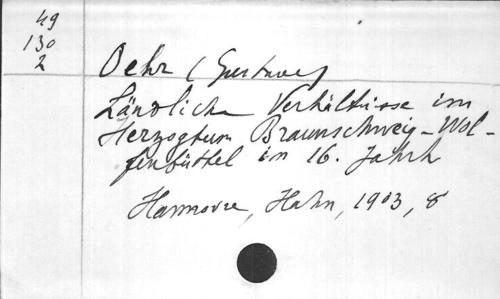 49
130
2
Oehr (Gustave)
Ländliche Verhältnisse im
Herzogtum Braunschweig-Wol-
fenbüttel im 16. Jahrh
Hannovre, Hahn, 1903, 8